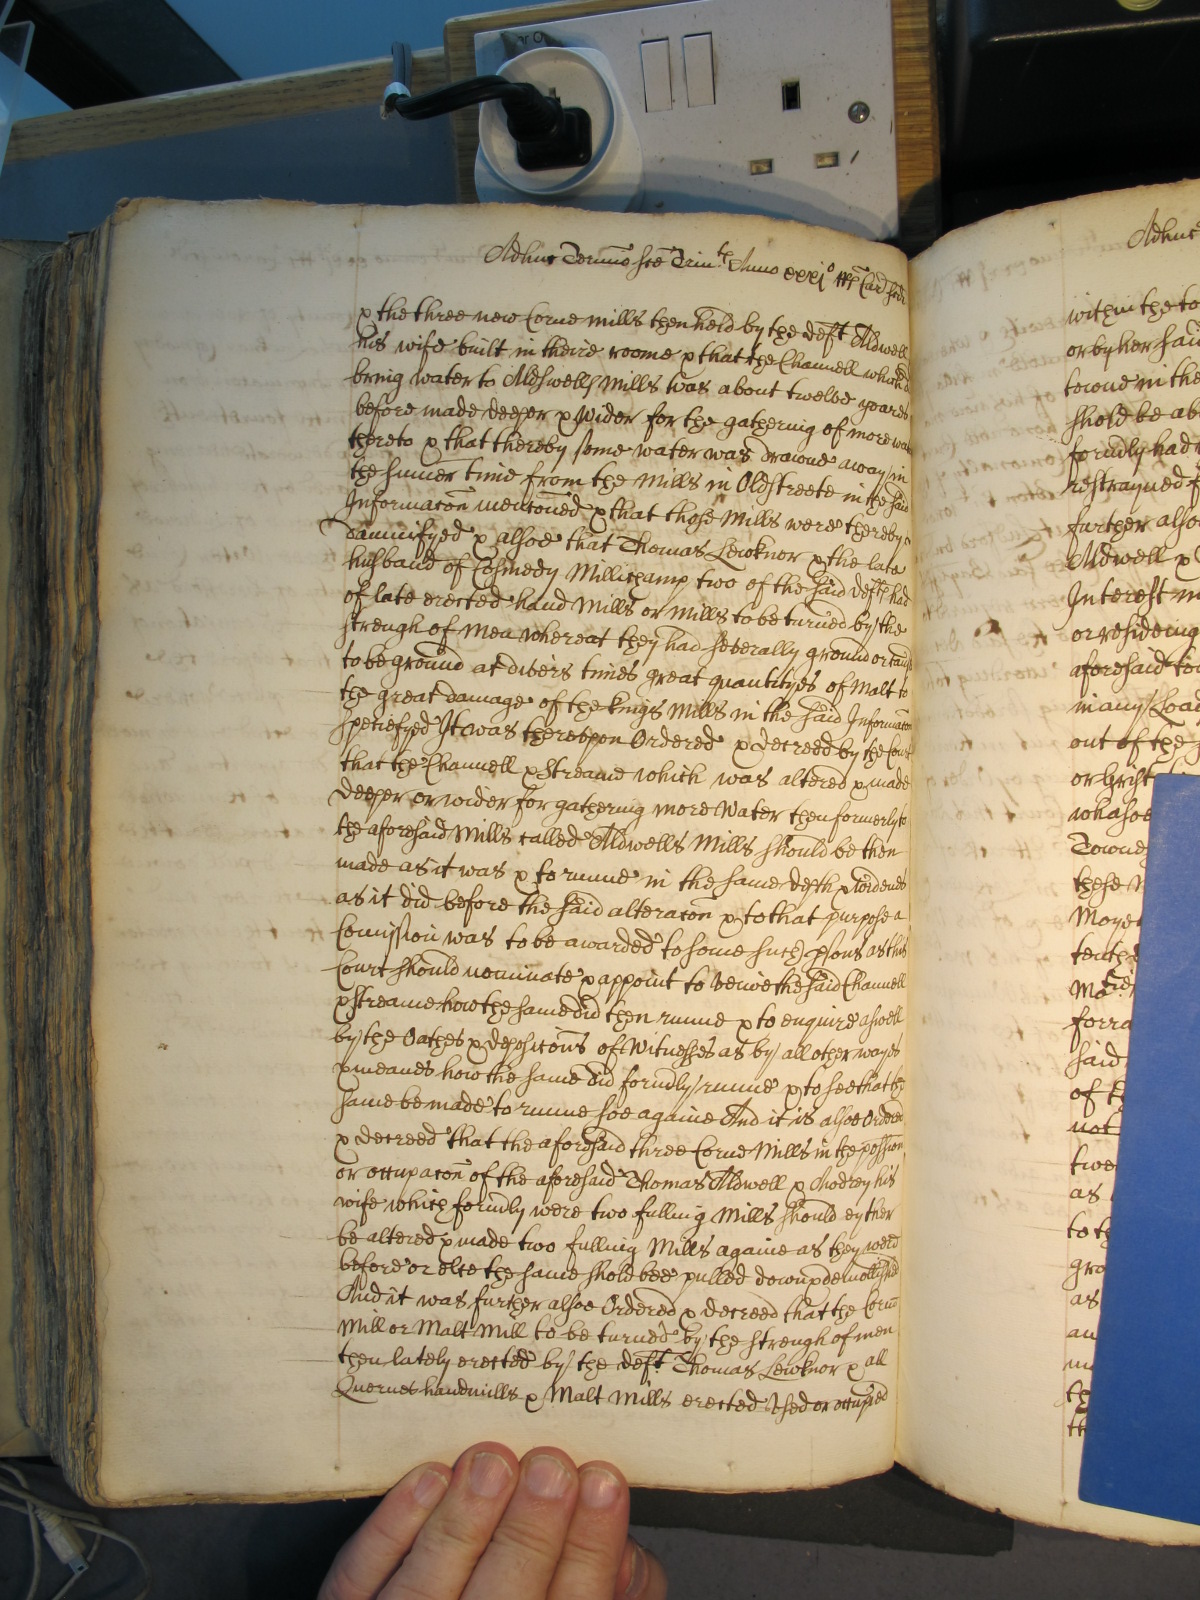 Adhuc Termino Sce Trin:te Anno xxxjo Rs Car Scdi
& the three new Corne mills then held by the deft Aldwell
his wife built in theire roome & that the Channell which
bring water to Aldwells Mills was about twelve yeares
before made deeper & wider for the gathering of more water
thereto & that thereby some water was drawne away in
the sumer time from the Mills in Oldstreete in the said
Informacon mencioned & that those Mills were thereby
damnifyed & alsoe that Thomas Lewknor & the late
husband of Cosmedy Millichamp two of the said defts had
of late erected hand Mills or Mills to be turned by the
strengh of Men whereat they had severally ground or caused
to be ground at divers times great quantityes of Malt to
the great damage of the kings Mills in the said Informacon
specifyed It was thereupon Ordered & decreed by the Court
that the Channell & Streame which was altered & made
deeper or wider for gathering more Water then formerly to
the aforesaid Mills called Aldwells Mills should be then
made as it was & to runne in the same depth & widenes
as it did before the said alteracon & to that purpose a
Comission was to be awarded to some such psons as this
Court should nominate & appoint to veiwe the said Channell
& Streame how the same did then runne & to enquire aswell
by the Oathes & depositons of Witnesses as by all other wayes
& meanes how the same did formdly runne & to see that the
same be made to runne soe againe And it is alsoe Ordered
& decreed that the aforesaid three Corne Mills in the possion
or occupacon of the aforesaid Thomas Aldwell & Audrey his
wife which formdly were two fulling Mills should eyther
be altered & made two fulling Mills againe as they were
before or else the same shold bee pulled downe & demolished
And it was further alsoe Ordered & decreed that the Corne
Mill or Malt Mill to be turned by the strengh of men
then lately erected by the deft Thomas Lewknor & all
Quernes handmills & Malt Mills erected used or occupied
Adhuc
within the to
or by her said
towne in the
shold be ab
formdly had
restrayned f
further alsoe
Aldwell &
Interest in
or resideing
aforesaid to
in any Load
out of the
or Grist
whasoe
Townes
these
Moyet
tenth
forra
said
of th
not
twe
as
to th
gro
as
an
th
th